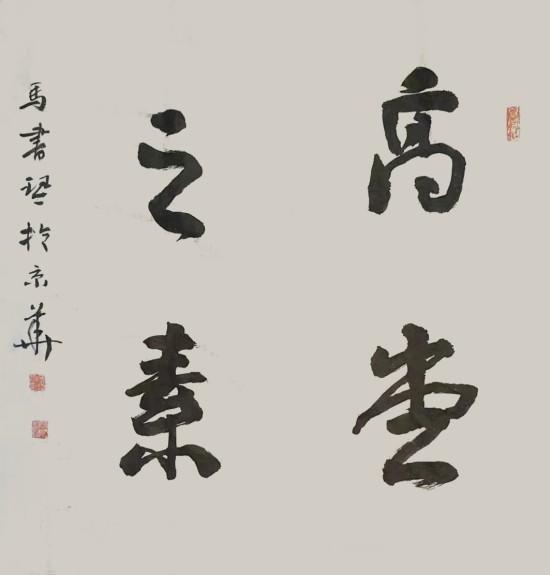 高堂
之素
馬書琴於京華